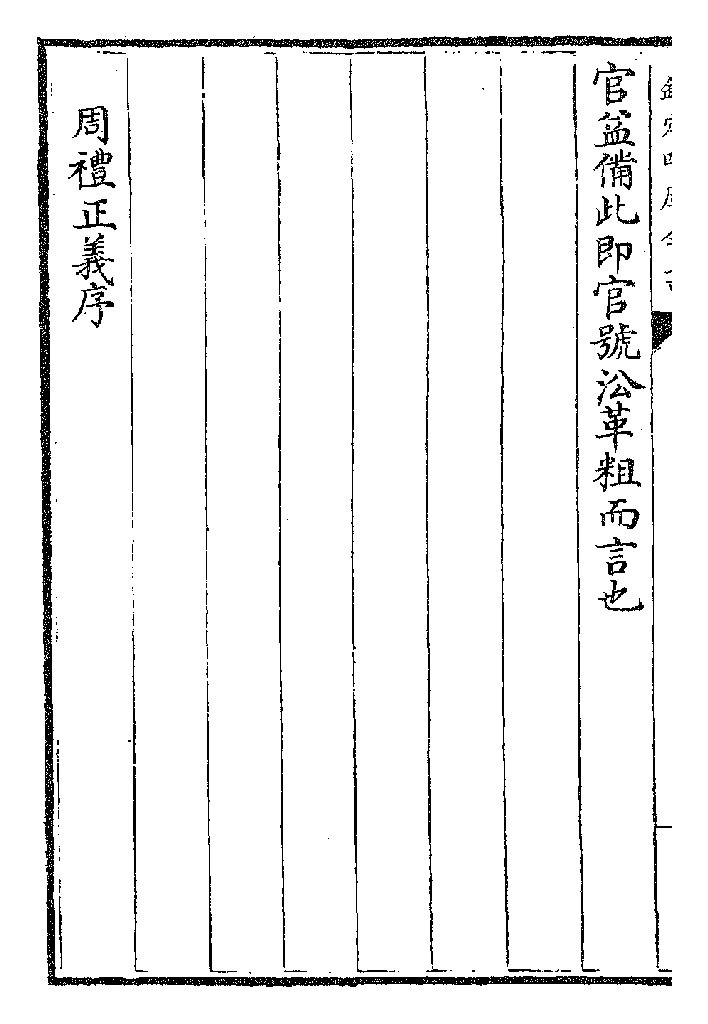 欽定四庫全書
官益備此即官號㳂革粗而言也
周禮正義序